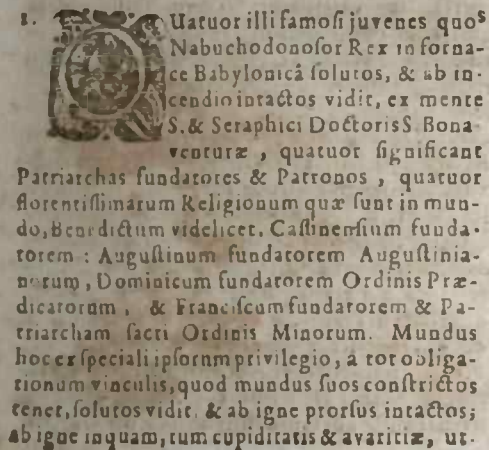 1. QUatuor illi famoſi juvenes quos
Nabuchodonoſor Rex in forna-
ce Babylonicâ ſolutos, & ab in-
cendio intactos vidit, ex mente
S. & Seraphici Doctoris S. Bona-
venturæ, quatuor ſignificant
Patriarchas fundatores & Patronos, quatuor
florentiſſimarum Religionum quæ ſunt in mun-
do, Benedictum videlicet, Caſſinenſium funda-
torem: Auguſtinum fundatorem Auguſtinia-
norum, Dominicum fundatorem Ordinis Præ-
dicatorum, & Franciſcum fundatorem & Pa-
triarcham ſacri Ordinis Minorum. Mundus
hoc ex ſpeciali ipſorum privilegio, à tot obliga-
tionum vinculis, quod mundus ſuos conſtrictos
tenet, ſolutos vidit, & ab igne prorſus intactos;
ab igne inquam, tum cupiditatis & avaritiæ, ut-